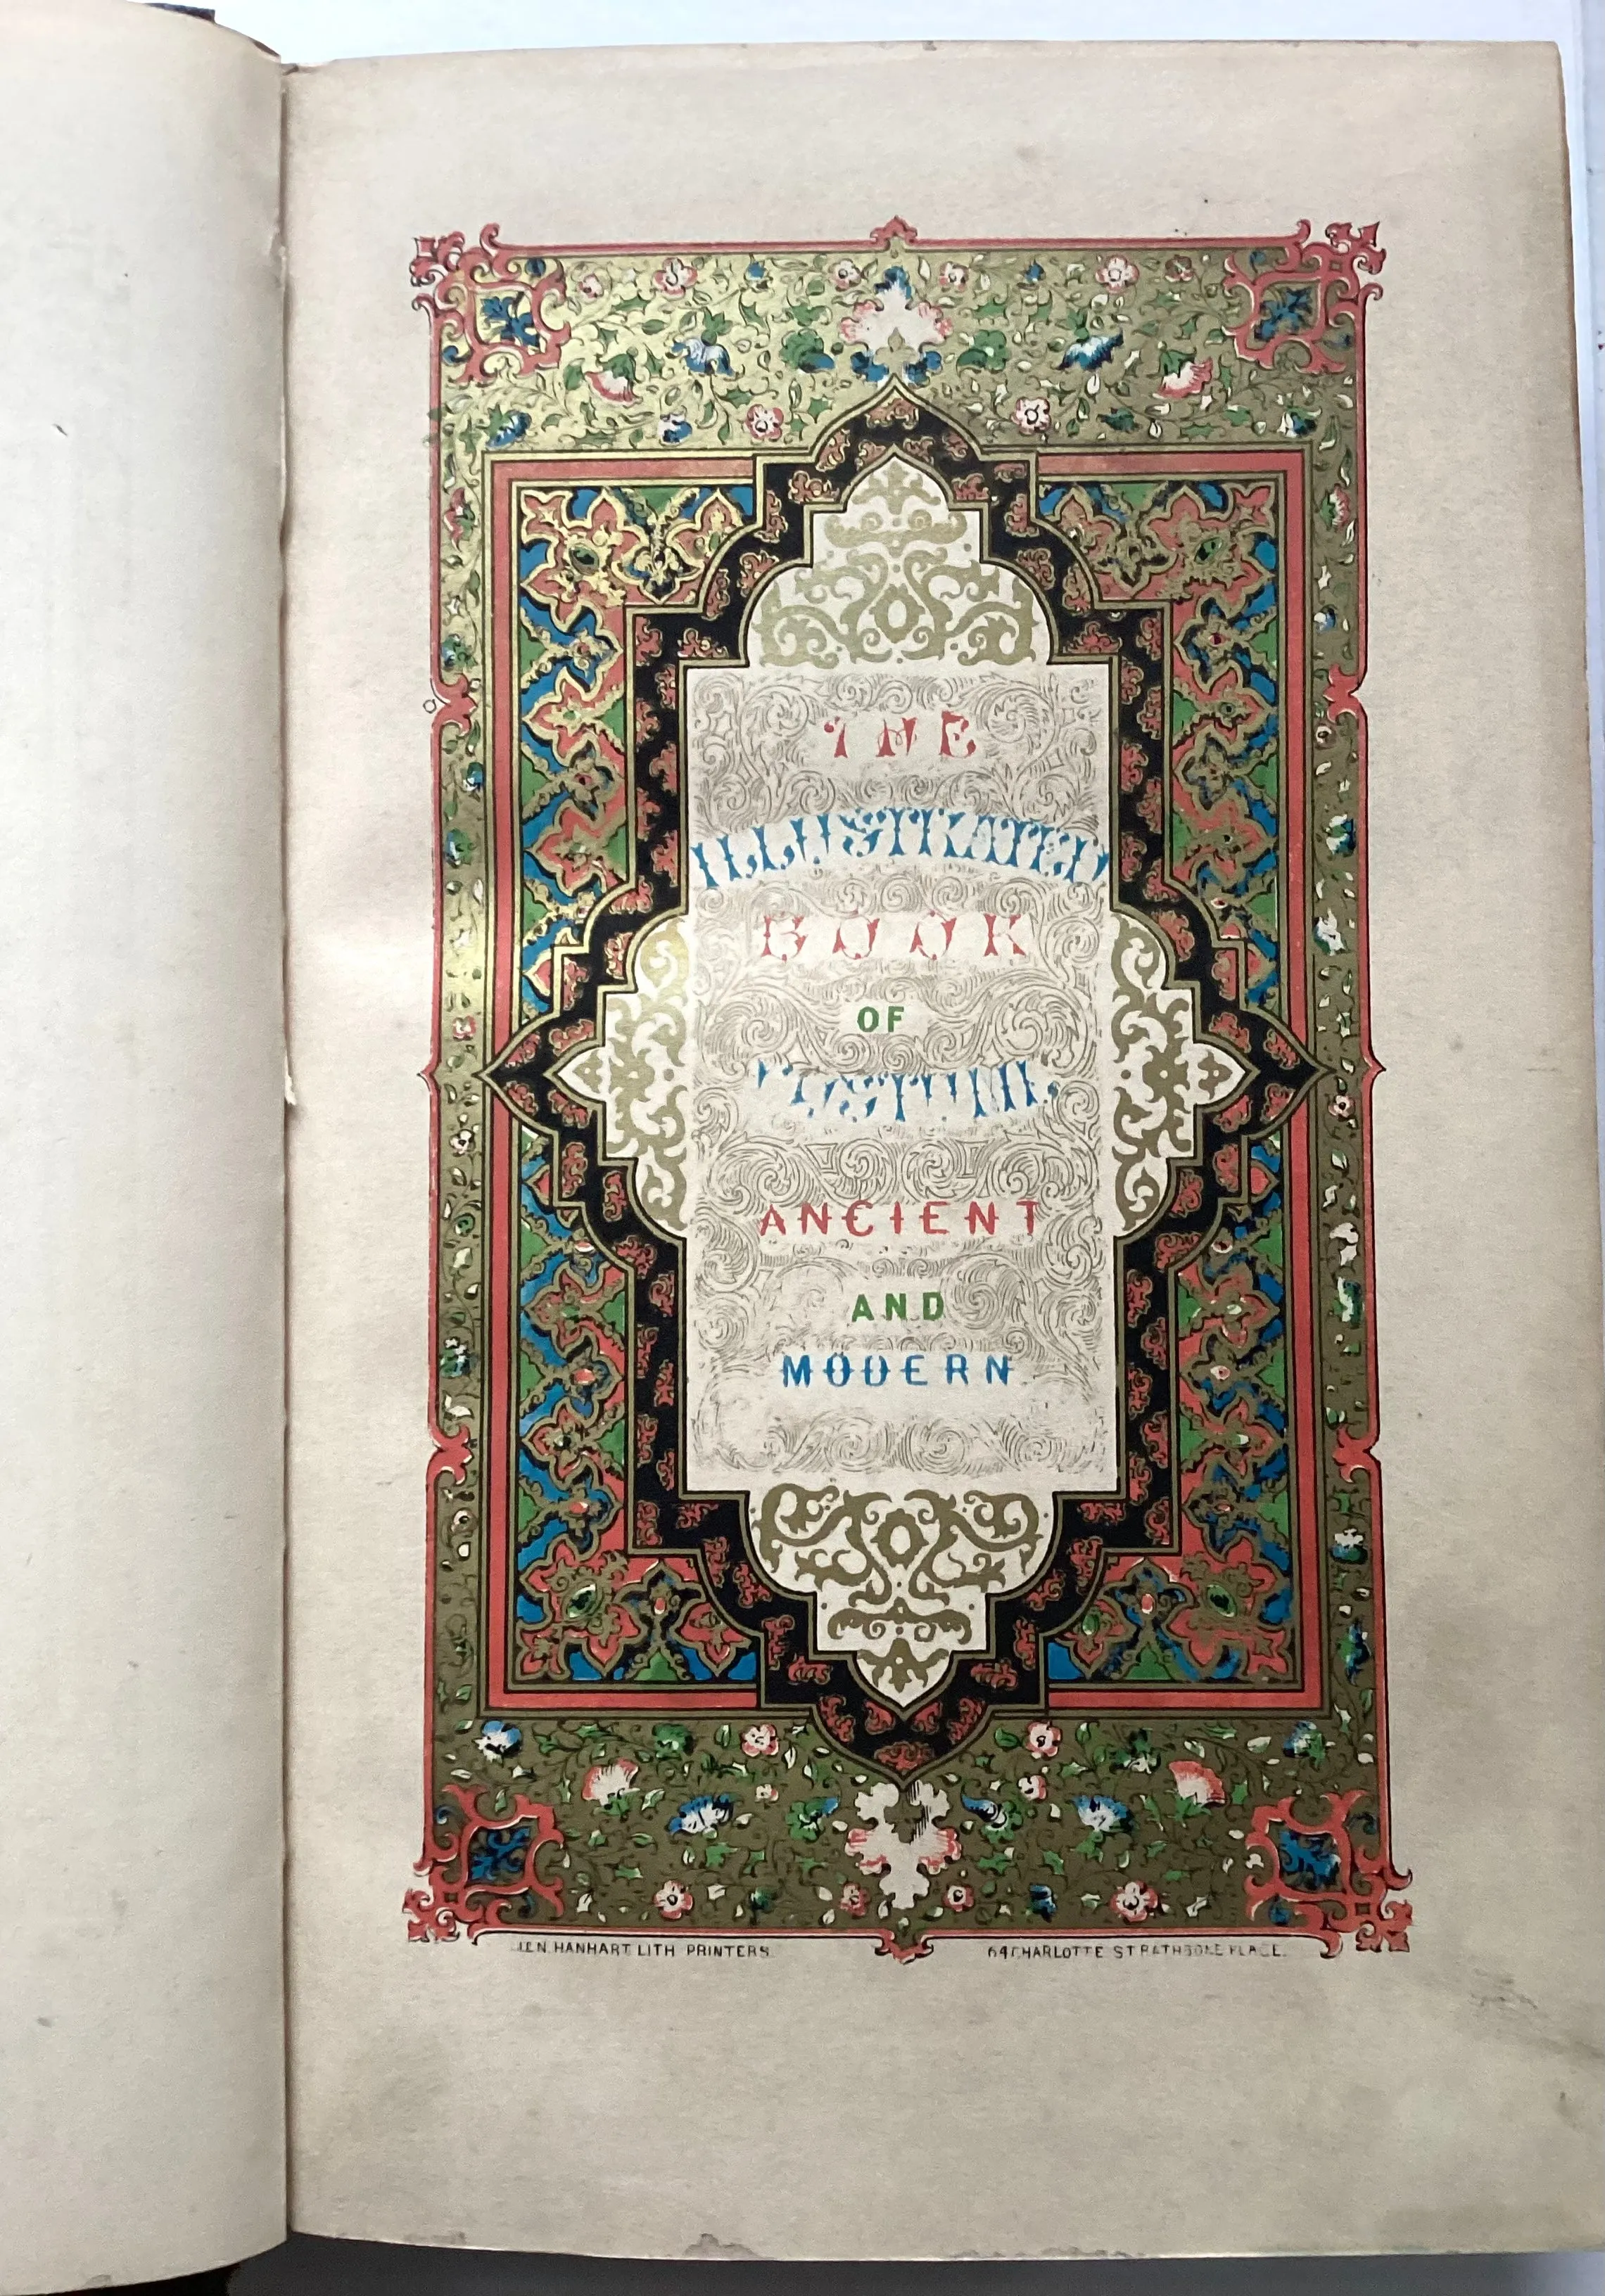 THE
ILLUSTRATED
BOOK
OF
COSTUME
ANCIENT
AND
MODERN
HANHART LITH PRINTERS. 64 CHARLOTTE ST RATHBONE PLACE.